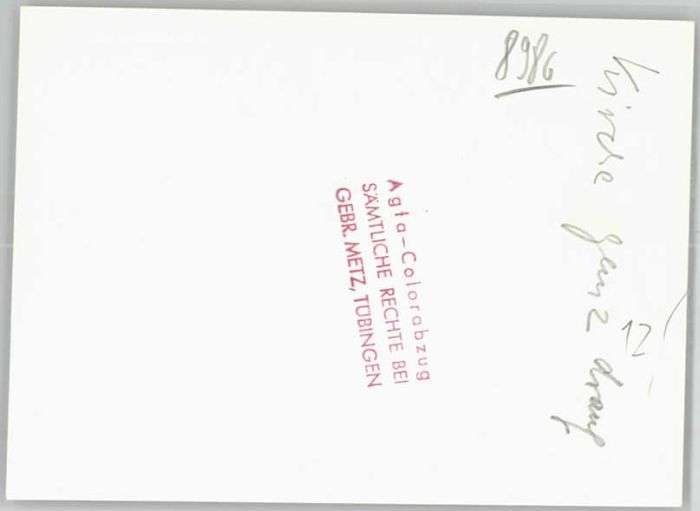 8986
Kirche ganz drauf
Agfa-Colorabzug
SÄMTLICHE RECHTE BEI
GEBR. METZ, TÜBINGEN